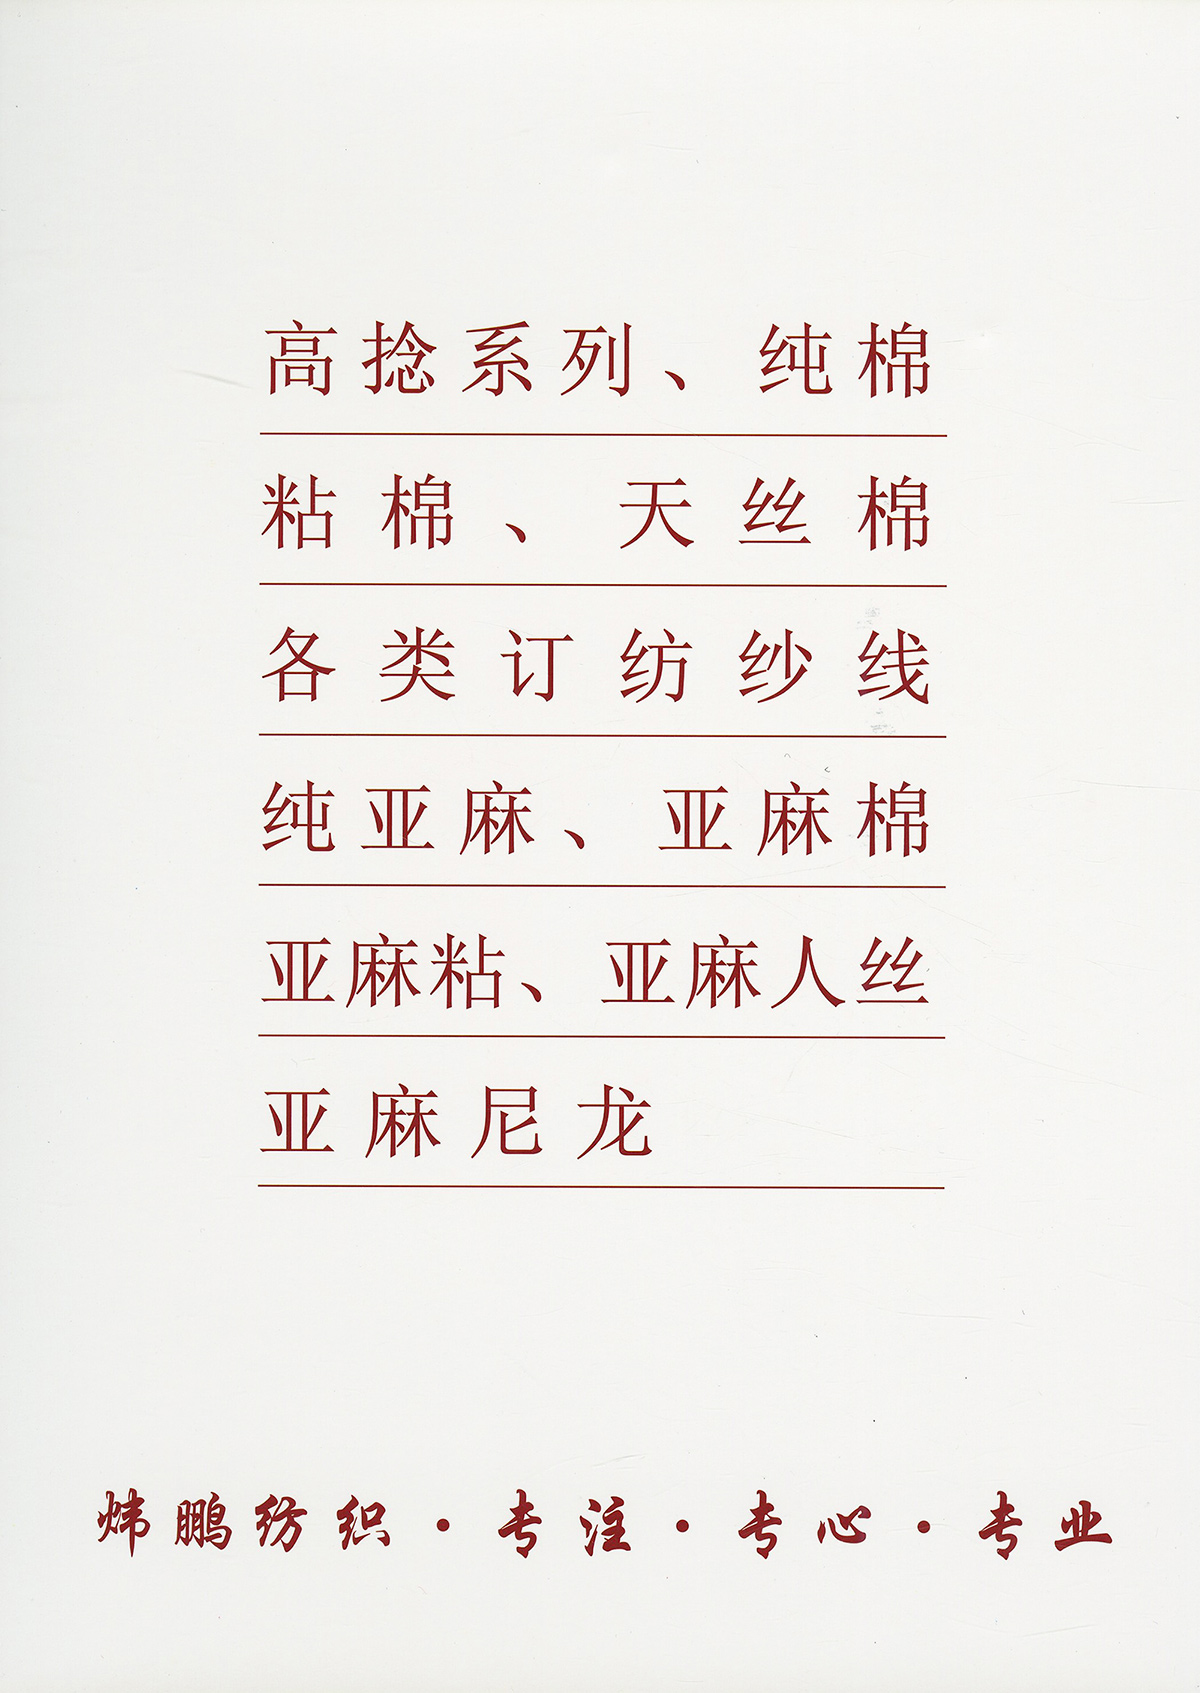 高捻系列、纯棉
粘棉、天丝棉
各类订纺纱线
纯亚麻、亚麻棉
亚麻粘、亚麻人丝
亚麻尼龙
炜鹏纺织·专注·专心·专业